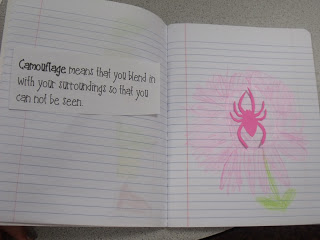 Camouflage means that you blend in
with your surroundings so that you
can not be seen.